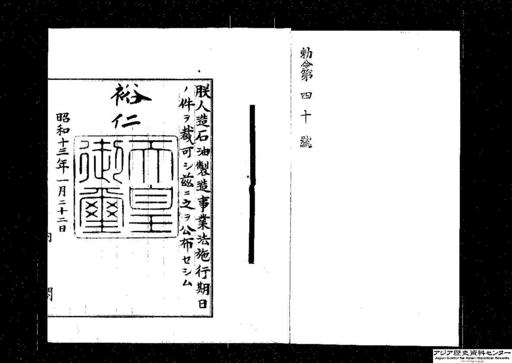 勅令第四十號
朕人造石油製造事業法施行期日
ノ件ヲ裁可シ茲ニ之ヲ公布セシム
裕仁
天皇御璽
昭和十三年一月二十二日
内閣
アジア歴史資料センター
Japan Center for Asian Historical Records